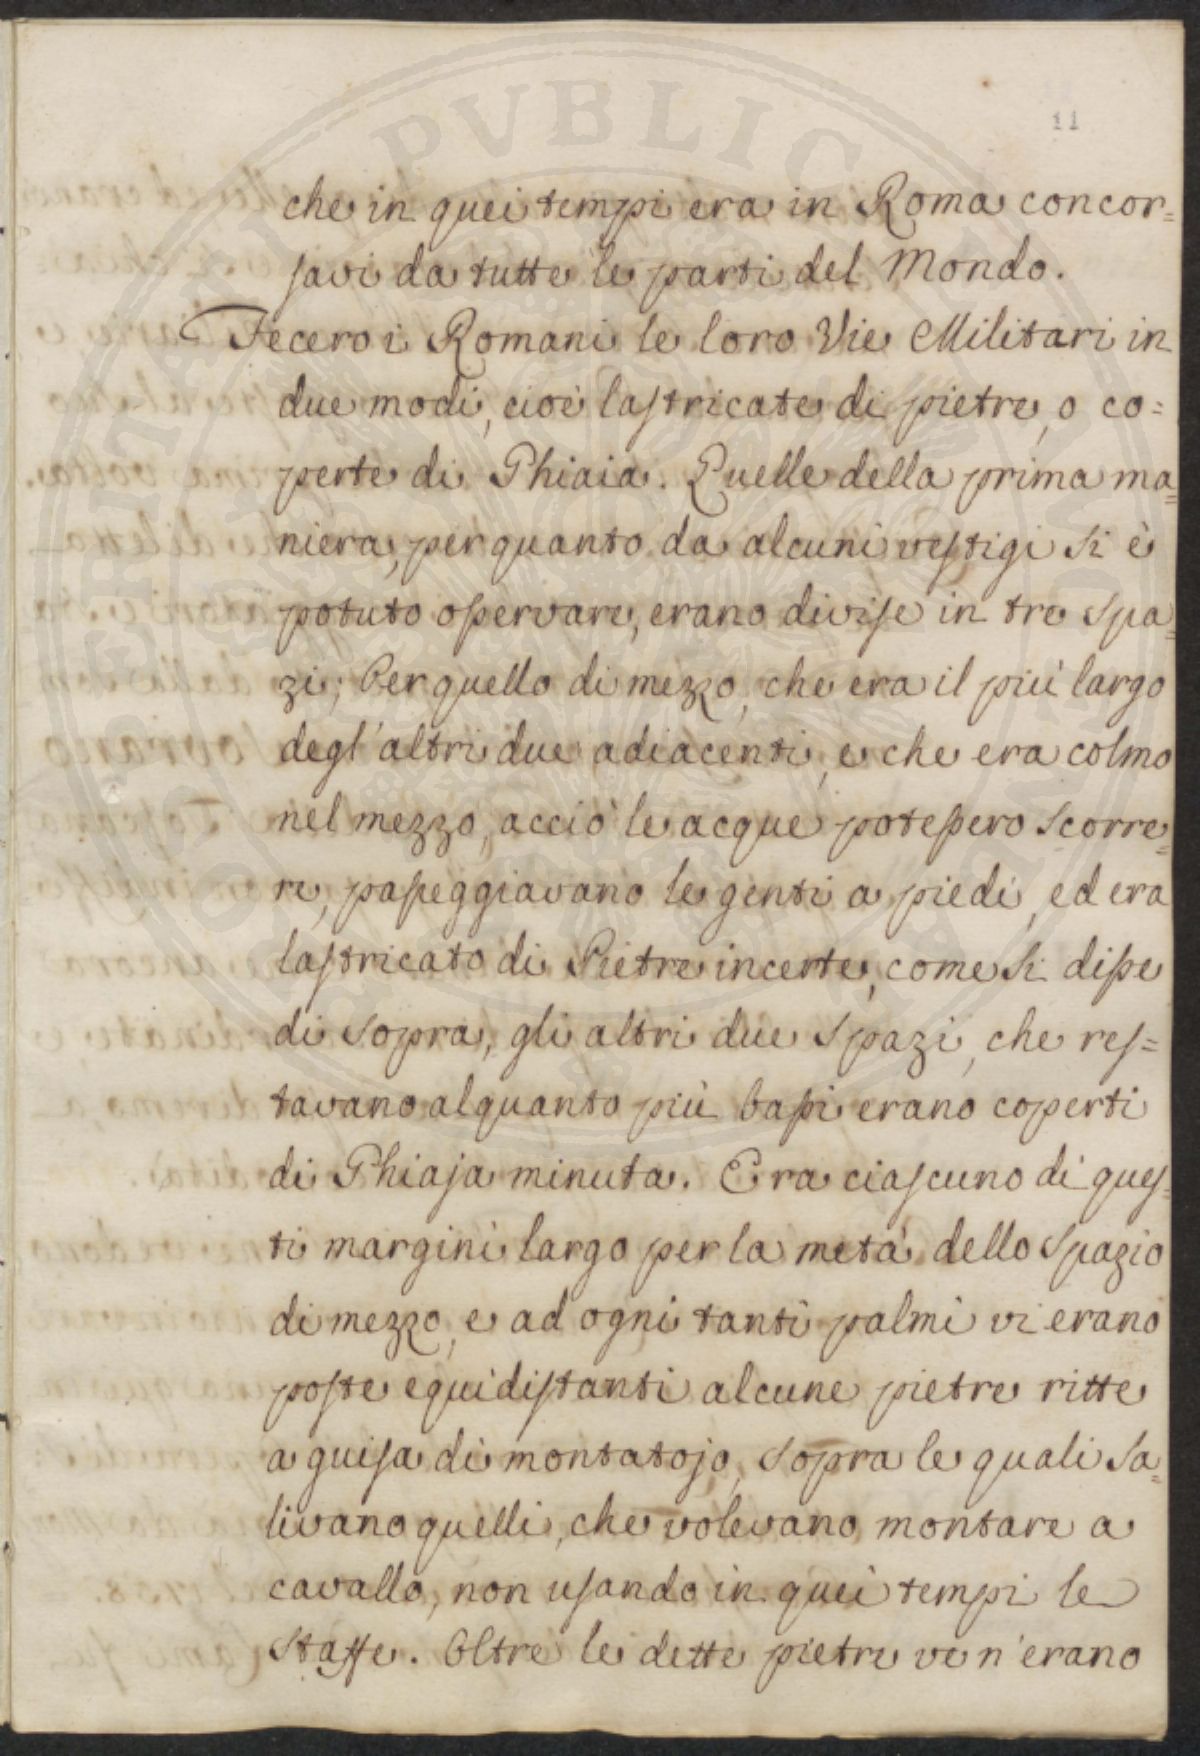 11
che in quei tempi era in Roma concor=
savi da tutte le parti del Mondo.
Fecero i Romani le loro Vie Militari in
due modi, cioè lastricate di pietre, o co=
perte di Ghiaia. Quelle della prima ma=
niera, per quanto da alcuni vestigi si è
potuto osservare, erano divise in tre spa=
zi; Per quello di mezzo, che era il più largo
degl'altri due adiacenti, e che era colmo
nel mezzo, acciò le acque potessero scorre=
re, passeggiavano le genti a piedi, ed era
lastricato di Pietre incerte, come si disse
di sopra, gli altri due spazi, che res=
tavano alquanto più bassi erano coperti
di Ghiaja minuta. Era ciascuno di ques=
ti margini largo per la metà dello spazio
di mezzo, e ad ogni tanti palmi vi erano
poste equidistanti alcune pietre ritte
a guisa di montatojo, sopra le quali sa=
livano quelli, che volevano montare a
cavallo, non usando in quei tempi le
staffe. Oltre le dette pietre ve n'erano